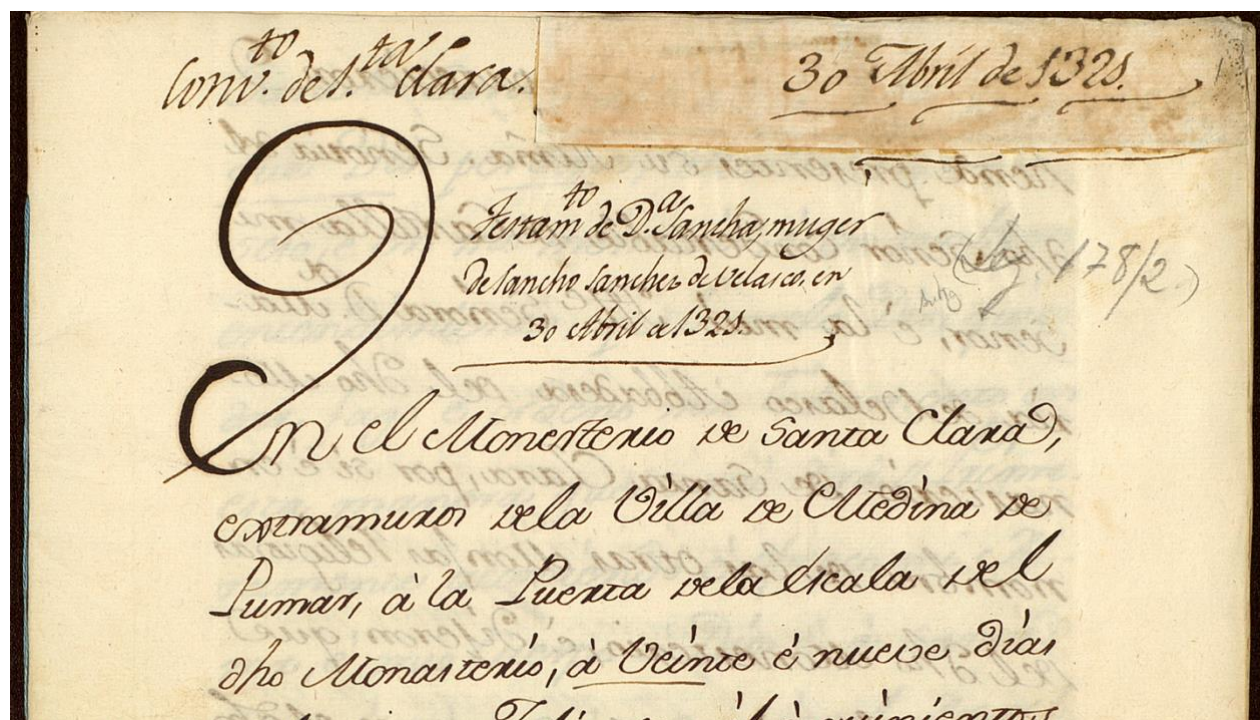 Conv.to de S.ta Clara.
30 Abril de 1321.
Testam.to de D.a Sancha, muger
de Sancho Sanchez de Velasco, en
30 Abril de 1321.
178/2)
En el Monesterio de Santa Clara,
extramuros dela Villa de Medina de
Pumar, à la Puerta dela Escala del
dho Monasterio, à Veinte è nueve dias